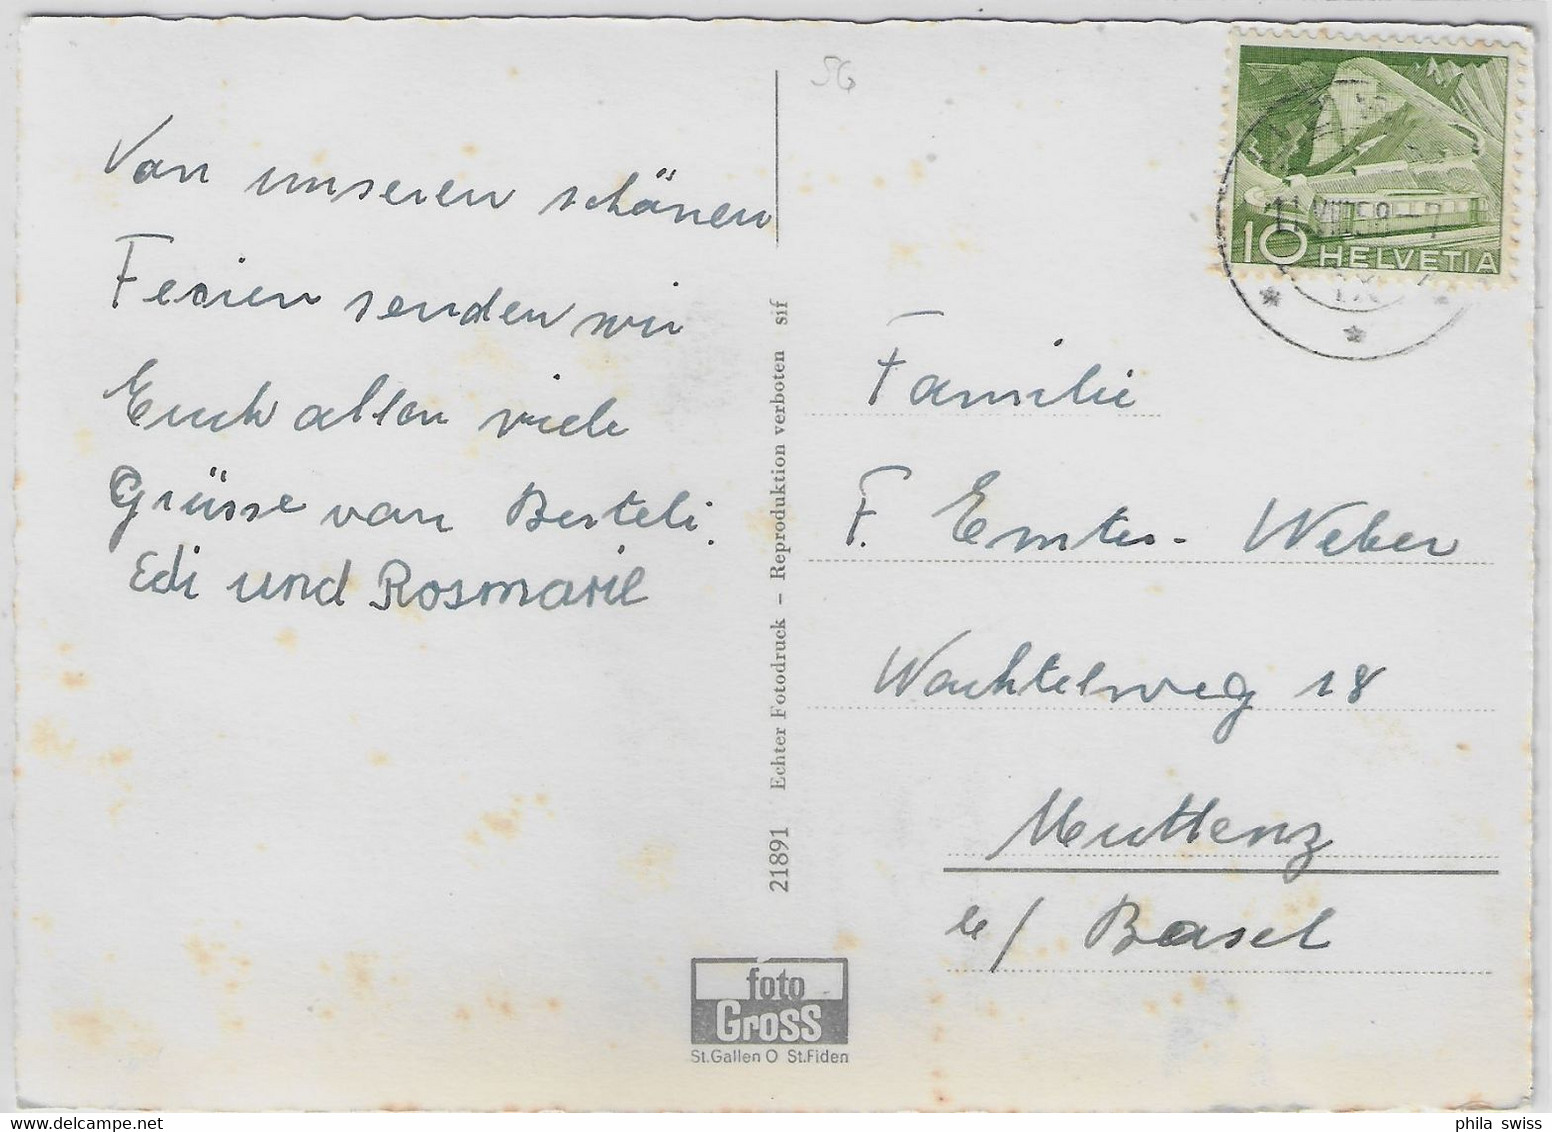 Von unseren schönen
Ferien senden wir
Euch allen viele
Grüsse von Berteli.
Edi und Rosmarie
21891 Echter Fotodruck – Reproduktion verboten sif
foto
Gross
St.Gallen O St.Fiden
SG
10 HELVETIA
11.VIII.58 - 7
Familie
F. - Weber
Wachtelweg 18
Muttenz
b/ Basel
phila swiss